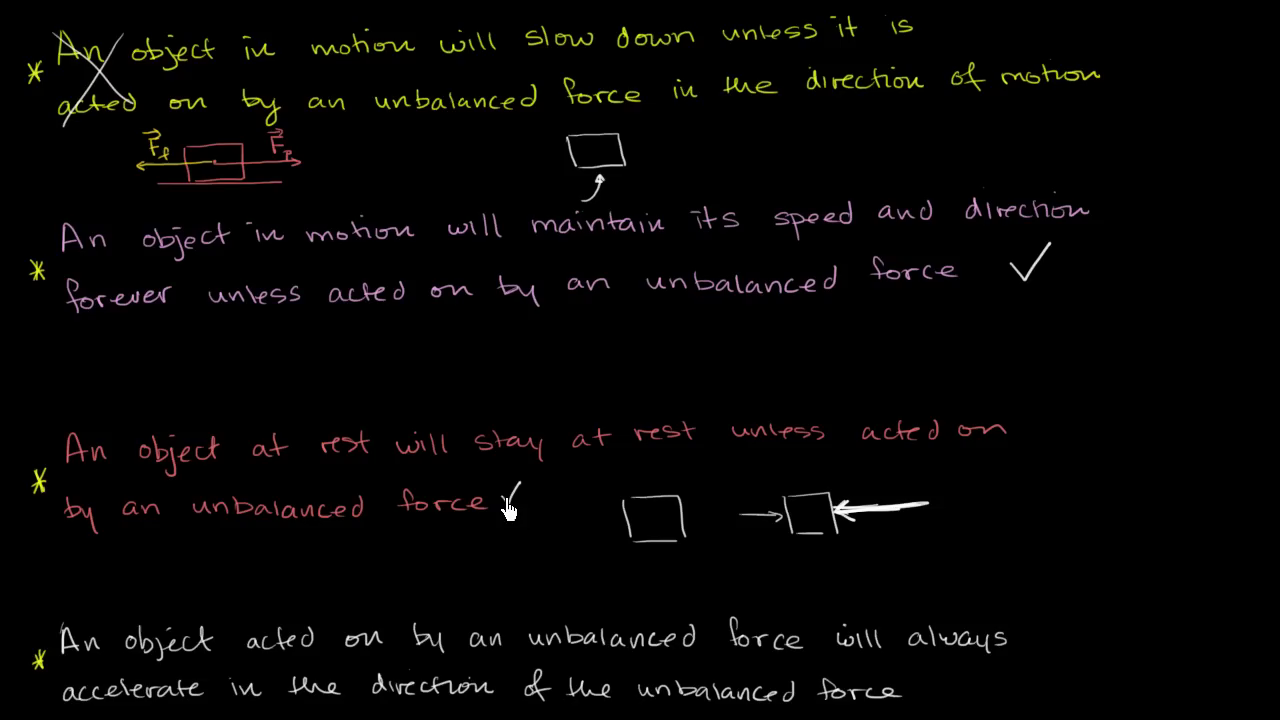 * An object in motion will slow down unless it is
acted on by an unbalanced force in the direction of motion
F⃗f F⃗p
An object in motion will maintain its speed and direction
* forever unless acted on by an unbalanced force ✓
An object at rest will stay at rest unless acted on
* by an unbalanced force ✓
* An object acted on by an unbalanced force will always
accelerate in the direction of the unbalanced force